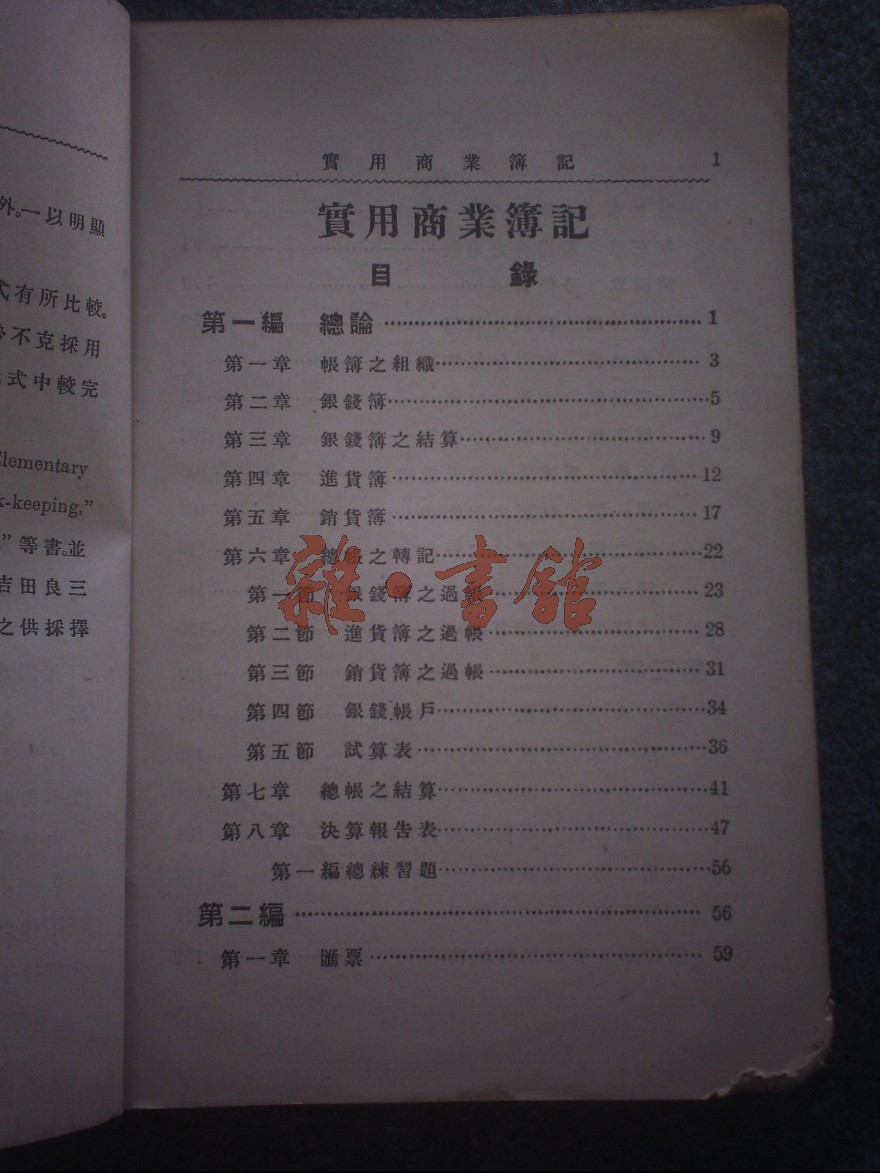 外。一以明顯
式有所比較。
不克採用
式中較完
Elementary
k-keeping,”
”等書。並
吉田良三
之供採擇
實用商業簿記 1
實用商業簿記
目錄
第一編 總論 1
第一章 帳簿之組織 3
第二章 銀錢簿 5
第三章 銀錢簿之結算 9
第四章 進貨簿 12
第五章 銷貨簿 17
第六章 總帳之轉記 22
第一節 銀錢簿之過帳 23
第二節 進貨簿之過帳 28
第三節 銷貨簿之過帳 31
第四節 銀錢帳戶 34
第五節 試算表 36
第七章 總帳之結算 41
第八章 決算報告表 47
第一編總練習題 56
第二編 56
第一章 匯票 59
雜·書館